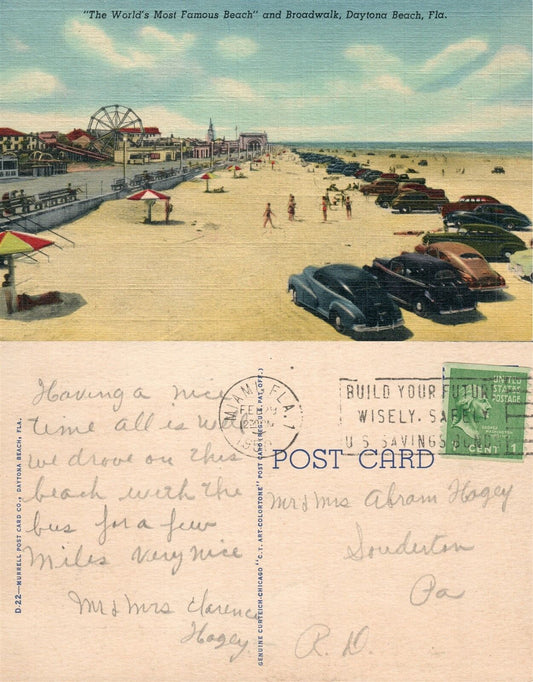 "The World's Most Famous Beach" and Broadwalk, Daytona Beach, Fla.
Having a nice
time all is well
we drove on this
beach with the
bus for a few
Miles very nice
Mr & Mrs Clarence
Hagey
D-22—MURRELL POST CARD CO., DAYTONA BEACH, FLA.
GENUINE CURTEICH-CHICAGO "C.T. ART-COLORTONE" POST CARD (REG. U.S. PAT. OFF.)
MIAMI, FLA. 7
FEB 29
BUILD YOUR FUTURE
WISELY, SAFELY
U.S. SAVINGS BONDS
UNITED
STATES
POSTAGE
GEORGE WASHINGTON
1 CENT 1
POST CARD
Mr & Mrs Abram Hagey
Souderton
Pa
R. D.